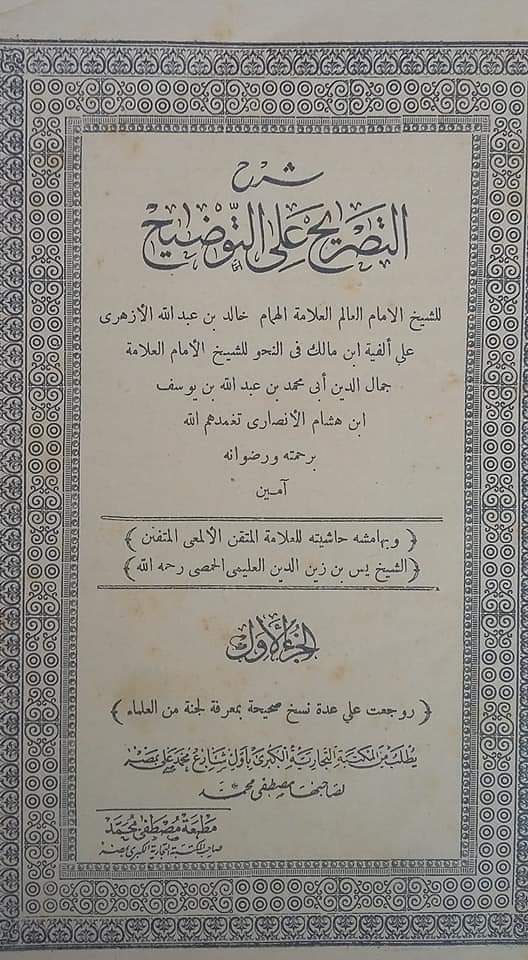 شرح
التصريح على التوضيح
للشيخ الامام العالم العلامة الهمام خالد بن عبد الله الأزهرى
على ألفية ابن مالك فى النحو للشيخ الامام العلامة
جمال الدين أبى محمد بن عبد الله بن يوسف
ابن هشام الأنصارى تغمدهم الله
برحمته ورضوانه
آمين
﴿ وبهامشه حاشيته للعلامة المتقن الألمعى المتفنن ﴾
﴿ الشيخ يس بن زين الدين العليمى الحمصى رحمه الله ﴾
الجزء الأول
﴿ روجعت على عدة نسخ صحيحة بمعرفة لجنة من العلماء ﴾
يطلب من المكتبة التجارية الكبرى بأول شارع محمد على بمصر
لصاحبها مصطفى محمد
مطبعة مصطفى محمد
صاحب المكتبة التجارية الكبرى بمصر